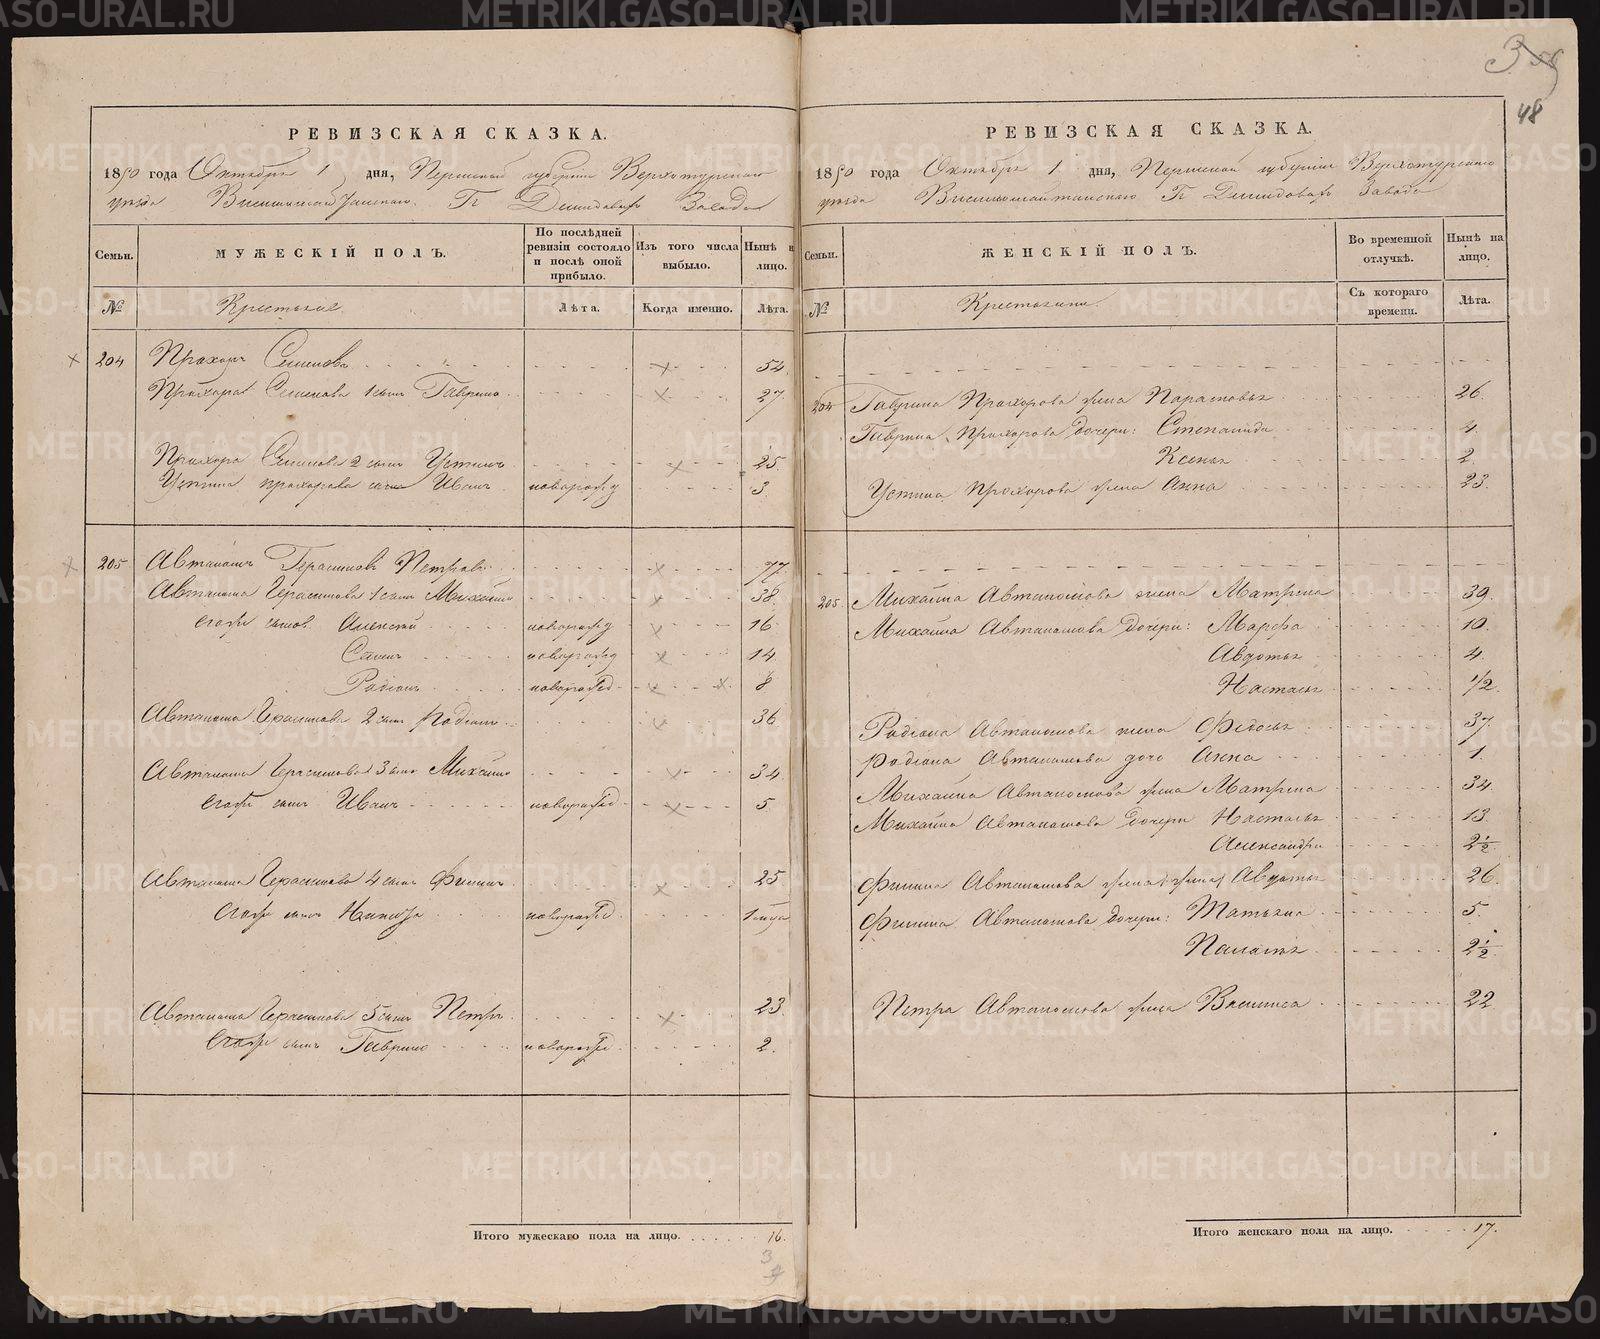 РЕВИЗСКАЯ СКАЗКА.
1850 года Октября 1 дня, Пермской губернии Верхотурскаго
уезда Г. Демидовыхъ Завода
Семьи.
МУЖЕСКІЙ ПОЛЪ.
По послѣдней ревизіи состояло и послѣ оной прибыло.
Изъ того числа выбыло.
Нынѣ на лицо.
№
Крестьяне
Лѣта.
Когда именно.
Лѣта.
204 Прохоръ Семеновъ 54
Прохора Семенова 1 сынъ Гаврило 27
Прохора Семенова 2 сынъ Устинъ 25
Устина Прохорова сынъ Иванъ новорожд 3
205 Автаномъ Герасимовъ Петровъ 77
Автанома Герасимова 1 сынъ Михайло 38
Алексей новорожд 16
новорожд 14
Радіонъ новорожд 8
Автанома Герасимова 2 сынъ Радіонъ 36
Автанома Герасимова 3 сынъ Михайло 34
сынъ Иванъ новорожд 5
Автанома Герасимова 4 сынъ Филипъ 25
сынъ новорожд
Автанома Герасимова 5 сынъ Петръ 23
сынъ Гаврило новорожд 2
Итого мужескаго пола на лицо. 16.
48
РЕВИЗСКАЯ СКАЗКА.
1850 года Октября 1 дня, Пермской губерніи Верхотурскаго
уезда Висимошайтанскаго Г. Демидовыхъ Завода
Семьи.
ЖЕНСКІЙ ПОЛЪ.
Во временной отлучкѣ.
Нынѣ на лицо.
№
Крестьянки
Съ котораго времени.
Лѣта.
204 Гаврила Прохорова жена Парасковья 26
Гаврила Прохорова дочери: Степанида 4
Ксенья 2
Устина Прохорова жена Анна 23
205 Михайла Автаномова жена Матрена 39
Михайла Автаномова дочери: Марфа 10
Авдотья 4
Настасья 1/2
Радіона Автаномова жена Федосья 37
Радіона Автаномова дочь Анна 1
Михайла Автаномова жена Матрена 34
Михайла Автаномова дочери Настасья 13
Александра 2 1/2
Филипа Автаномова жена Авдотья 26
Филипа Автаномова дочери: Татьяна 5
Паладья 2 1/2
Петра Автаномова жена Василиса 22
Итого женскаго пола на лицо. 17.
METRIKI.GASO-URAL.RU